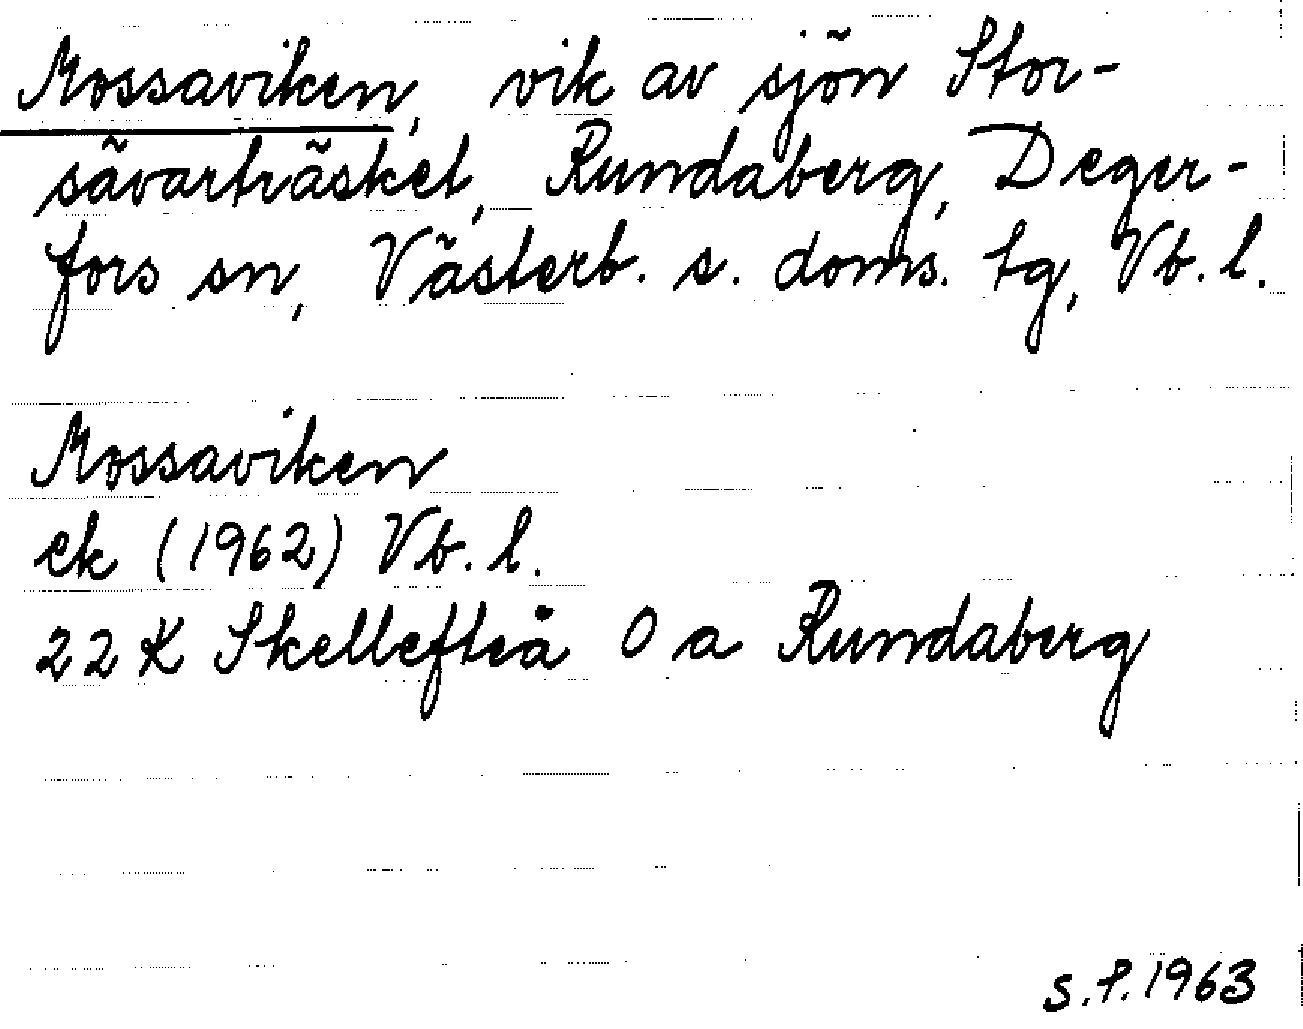 Mossaviken, vik av sjön Stor-
sävarträsket, Rundaberg, Deger-
fors sn, Västerb. s. doms. tg, Vb. l.
Mossaviken
ek (1962) Vb. l.
22 K Skellefteå 0 a Rundaberg
S.P. 1963